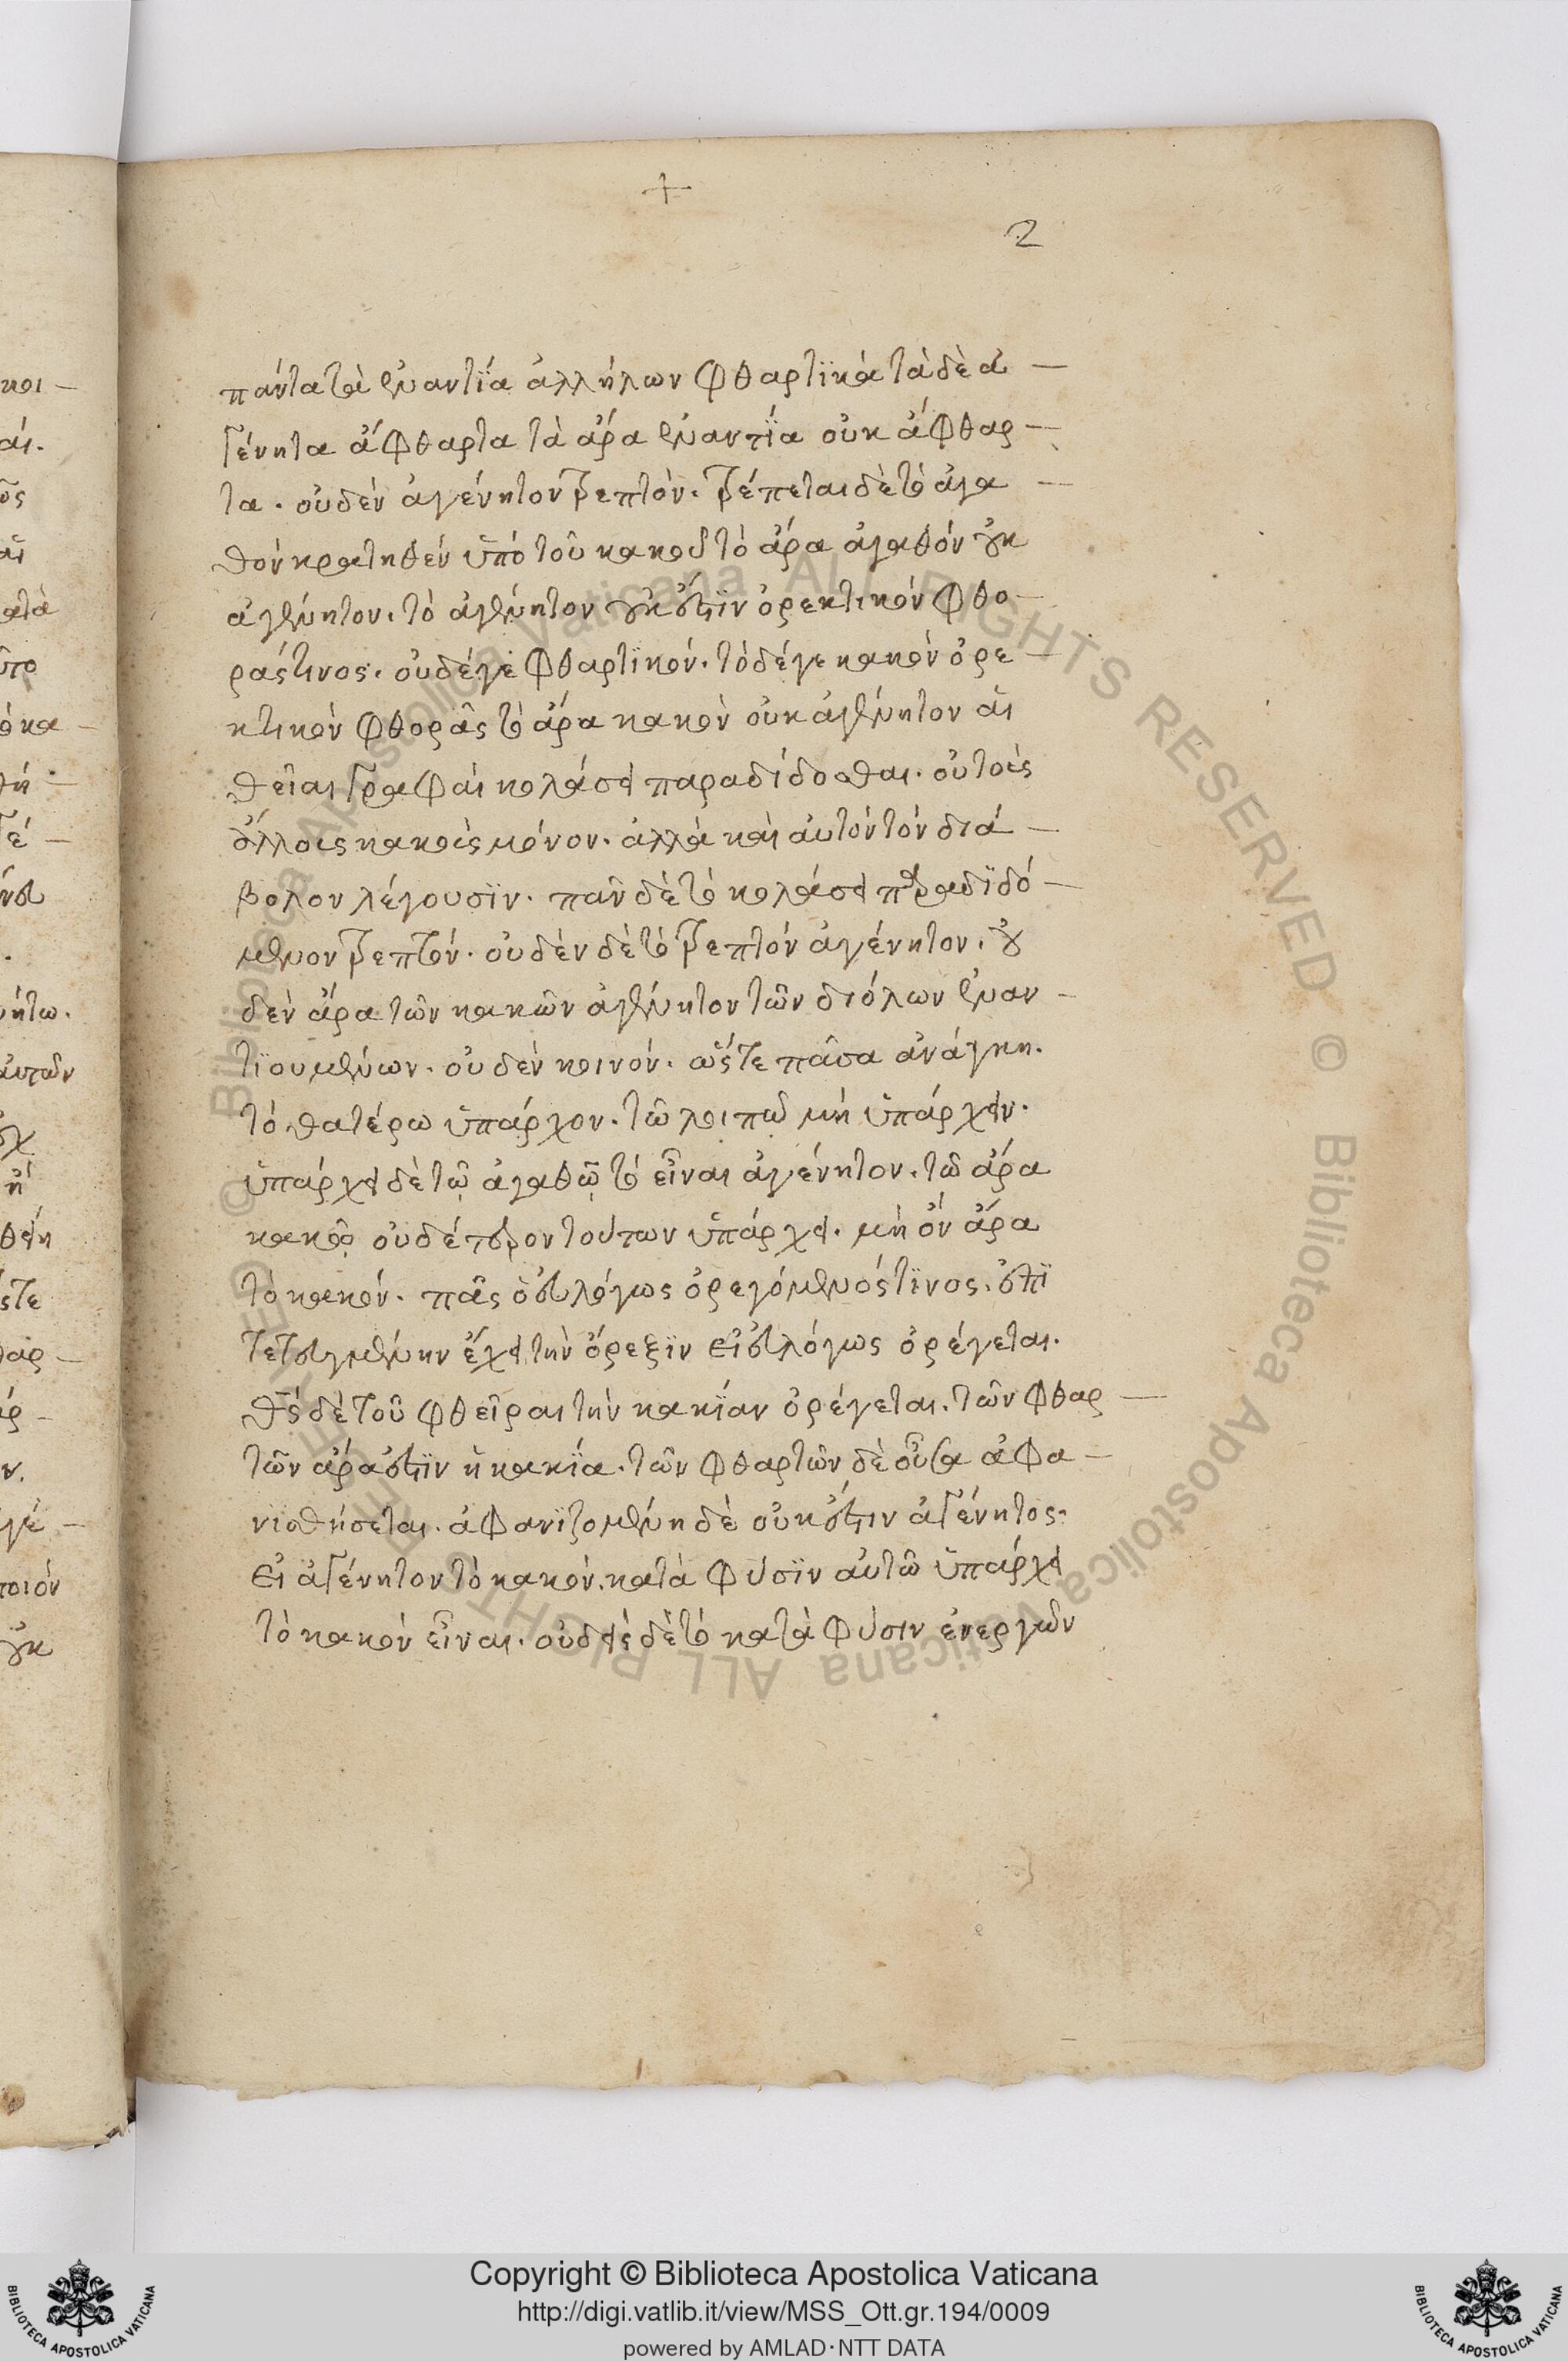 +
2
πάντα τὰ ἐναντΐα ἀλλήλων φθαρτϊκὰ τὰ δὲ ἀ –
γένητα ἄφθαρτα τὰ ἄρα ἐναντΐα οὐκ ἄφθαρ –
τα. οὐδὲν ἀγένητον τρεπτὸν. τρέπεται δὲ τὸ ἀγα –
θὸν κρατηθὲν ὑπὸ τοῦ κακοῦ τὸ ἄρα ἀγαθὸν οὐκ
ἀγένητον. τὸ ἀγένητον οὐκ ἔστϊν ὀρεκτικὸν φθο –
ρᾶς τινος. οὐδέ γε φθαρτϊκόν. τὸ δέ γε κακὸν ὀρε –
κτικὸν φθορᾶς τὸ ἄρα κακὸν οὐκ ἀγένητον αἱ
θεῖαι γραφαὶ κολάσει παραδίδοσθαι. οὐ τοὺς
ἄλλοις κακοὶς μόνον. ἀλλὰ καὶ αὐτὸν τὸν διά –
βολον λέγουσϊν. πᾶν δὲ τὸ κολάσει παραδϊδό –
μενον τρεπτόν. οὐδὲν δὲ τὸ τρεπτὸν ἀγένητον. οὐ
δὲν ἄρα τῶν κακῶν ἀγένητον τῶν διόλων ἐναν –
τϊουμένων. οὐδὲν κοινόν. ὥστε πᾶσα ἀνάγκη.
τὸ θατέρω ὑπάρχον. τῶ λοιπῶ μὴ ὑπάρχειν.
ὑπάρχει δὲ τῷ ἀγαθῷ τὸ εἶναι ἀγένητον. τῶ ἄρα
κακῷ οὐδέτερον τούτων ὑπάρχει. μὴ ὂν ἄρα
τὸ κακόν. πᾶς ὁ εὐλόγως ὀρεγόμενός τϊνος. ἐπῒ
τεταγμένην ἔχει τὴν ὄρεξϊν εἰ εὐλόγως ὀρέγεται.
θς δὲ τοῦ φθεῖραι τὴν κακΐαν ὀρέγεται. τῶν φθαρ –
τῶν ἄρα ἐστϊν ἡ κακΐα. τῶν φθαρτῶν δὲ οὖσα ἀφα –
νϊσθήσεται. ἀφανϊζομένη δὲ οὐκ ἔστιν ἀγένητος.
εἰ ἀγένητον τὸ κακόν, κατὰ φύσϊν αὐτῶ ὑπάρχει
τὸ κακὸν εἶναι. οὐδεὶς δὲ τὸ κατὰ φύσιν ἐνεργῶν
Copyright © Biblioteca Apostolica Vaticana
http://digi.vatlib.it/view/MSS_Ott.gr.194/0009
powered by AMLAD·NTT DATA